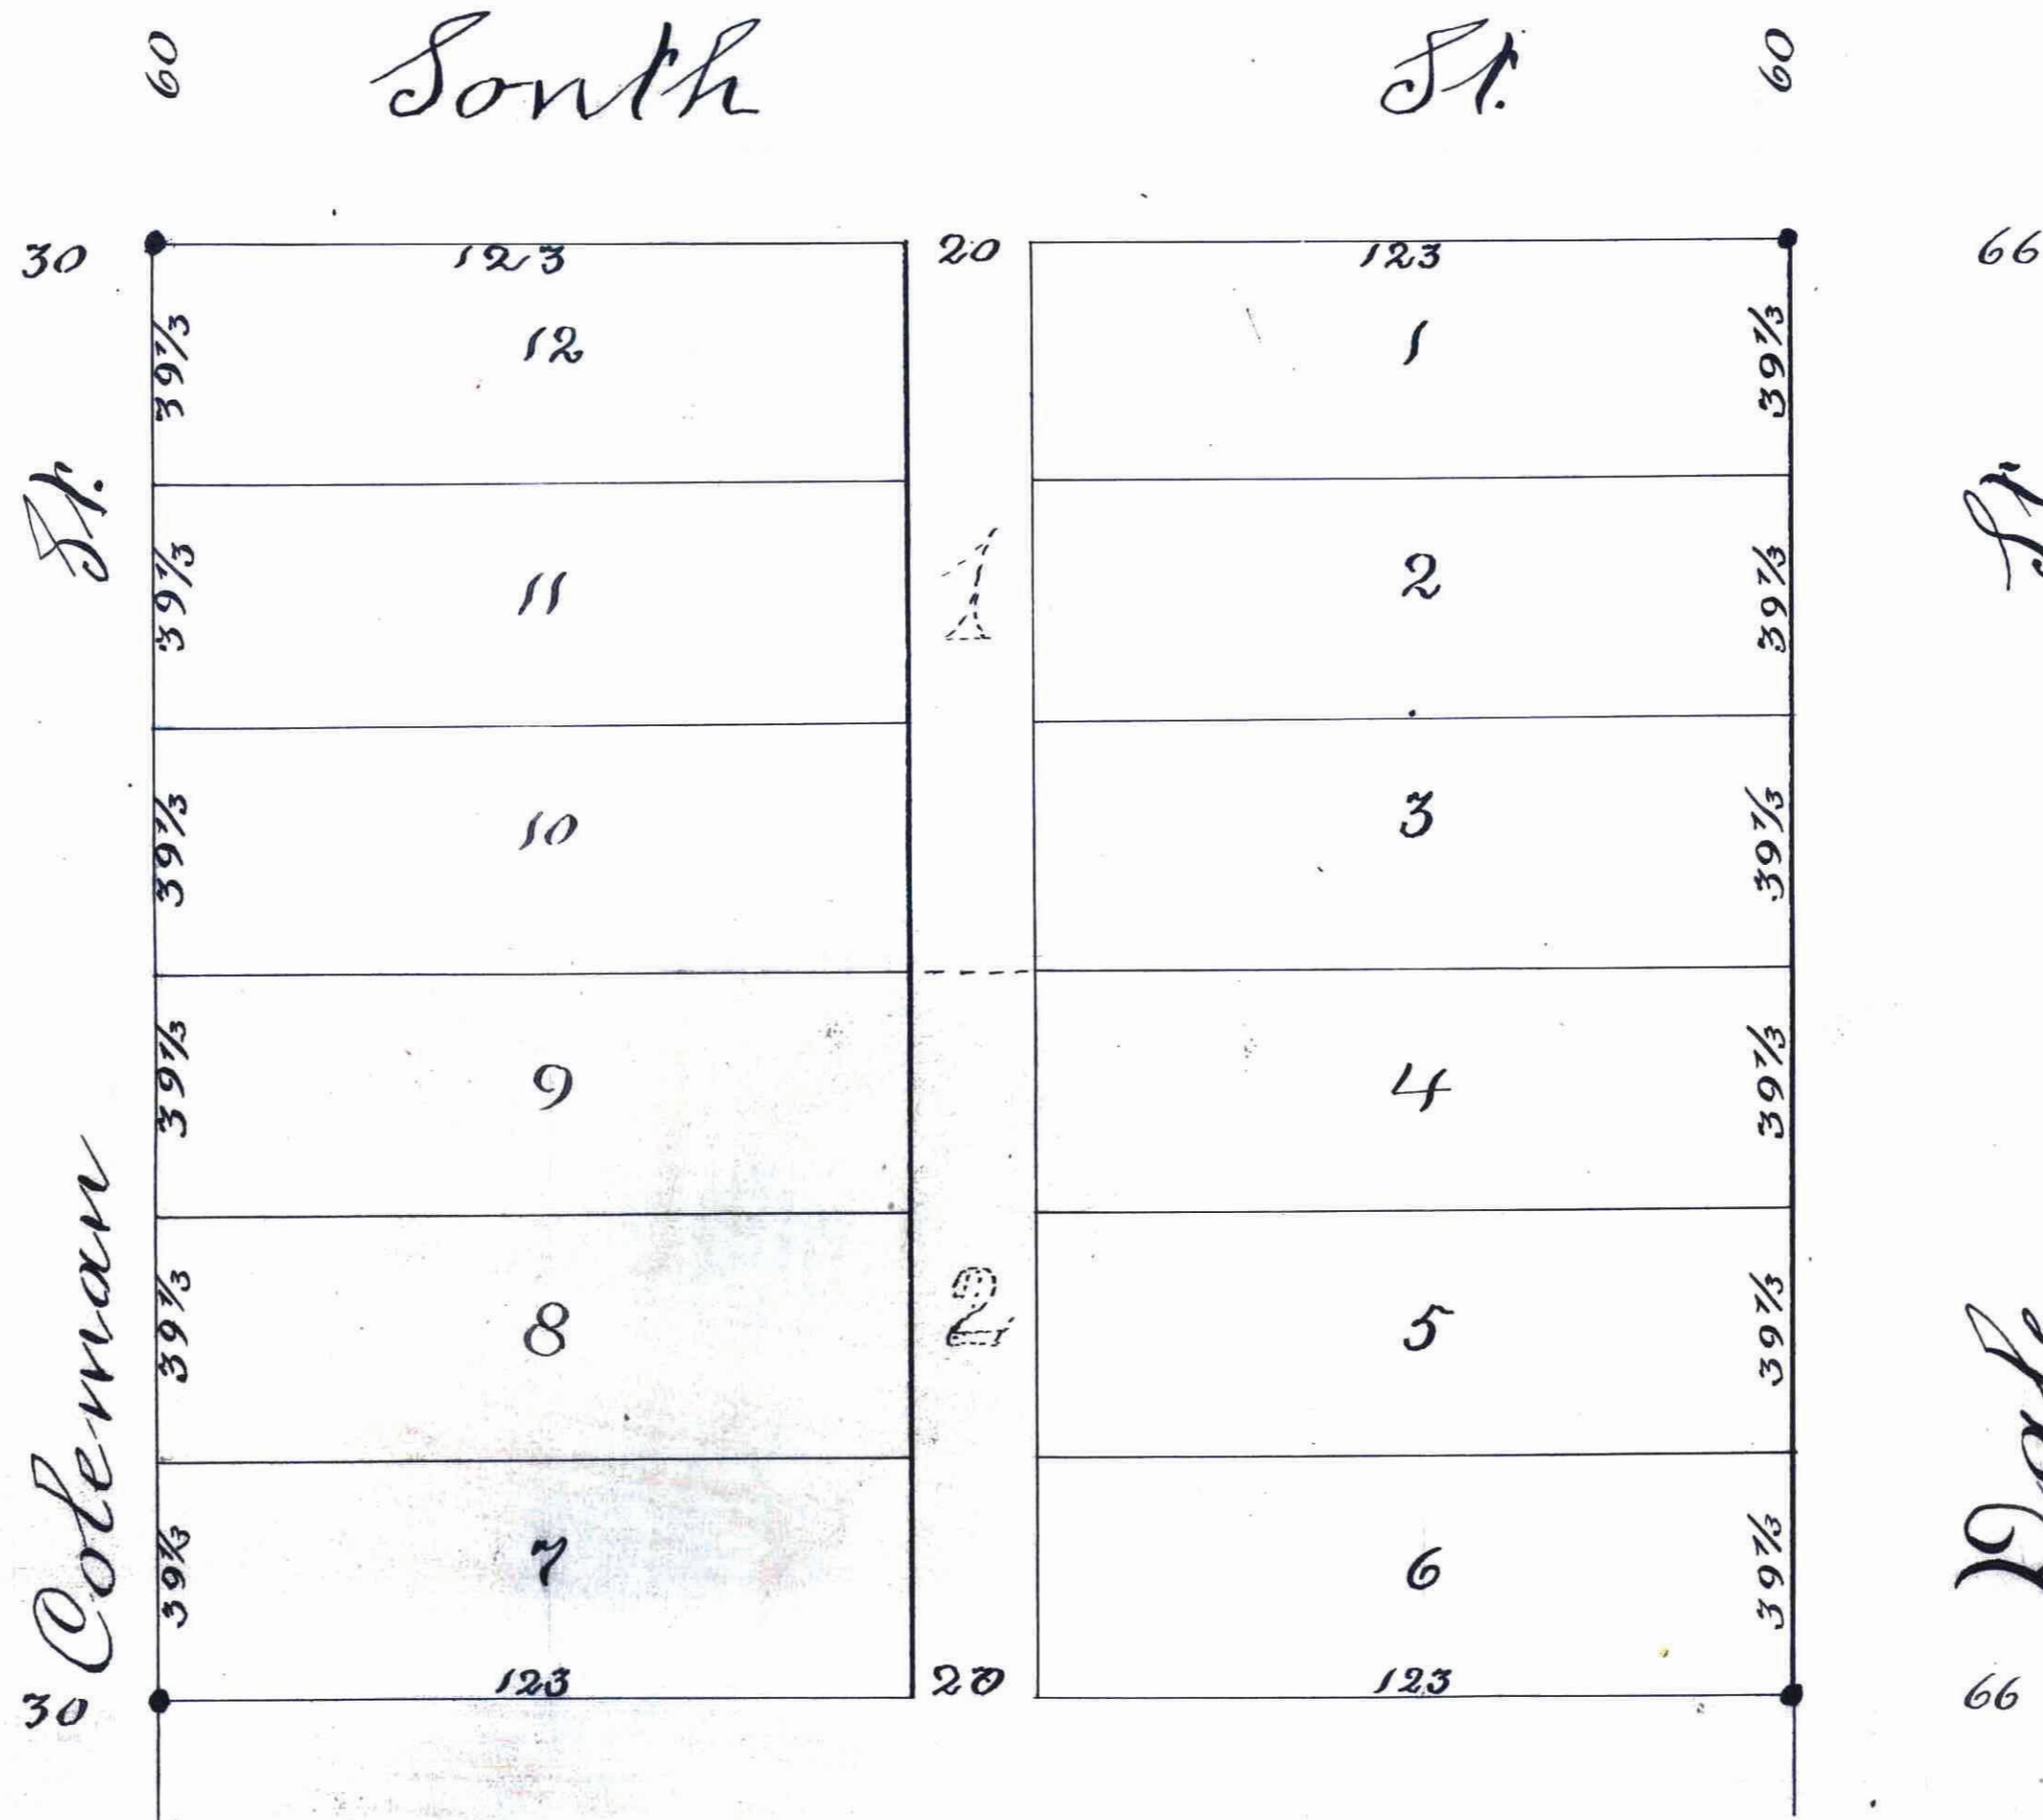 60 South St. 60
30 123 20 123 66
39 1/3 12 1 39 1/3
St. St
39 1/3 11 1 2 39 1/3
39 1/3 10 3 39 1/3
39 1/3 9 4 39 1/3
Coleman
39 1/3 8 2 5 39 1/3
39 1/3 7 6 39 1/3
30 123 20 123 66